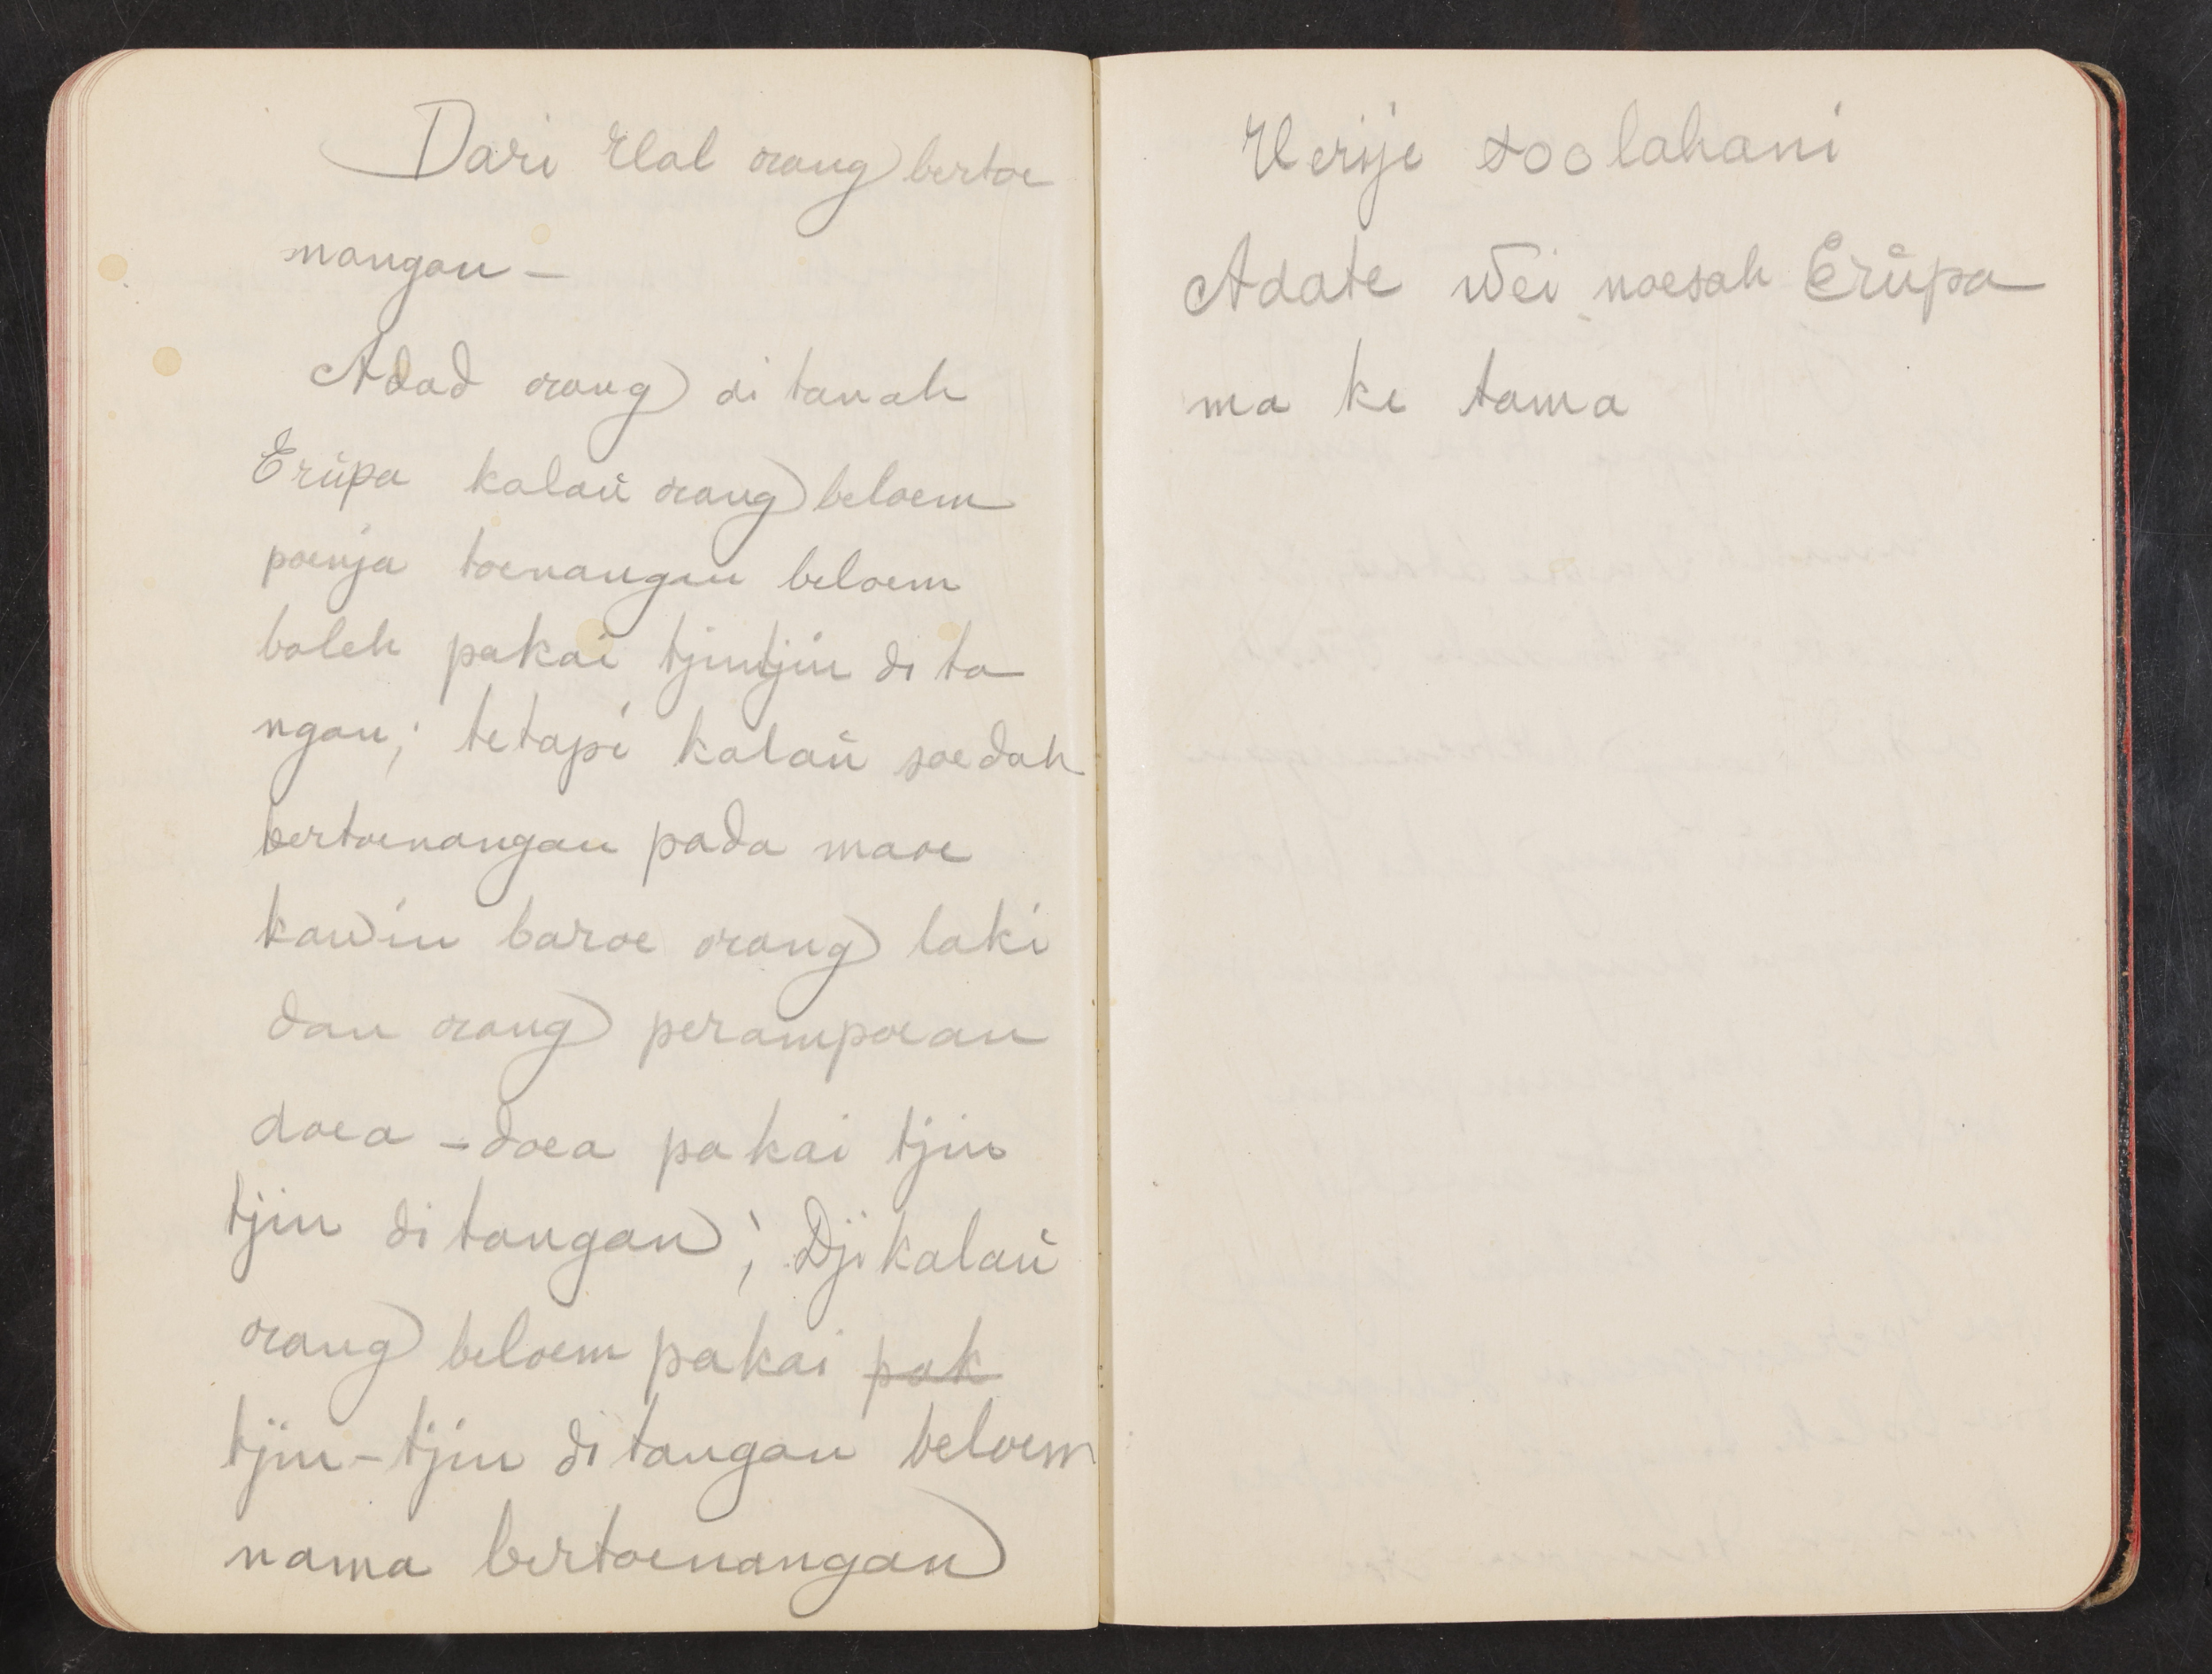 Dari Hal orang bertoe
nangan –
Adad orang di tanah
Erŭpa kalaŭ orang beloem
poenja toenangan beloem
boleh pakai tjintjin di ta
ngan; tetapi kalaŭ soedah
bertoenangan pada maoe
kawin baroe orang laki
dan orang perampoean
doea - doea pakai tjin
tjin di tangan; Djikalaŭ
orang beloem pakai pak
tjin-tjin di tangan beloem
nama bertoenangan
Herije soolahani
Adate wei noesah Erŭpa
ma ke tama